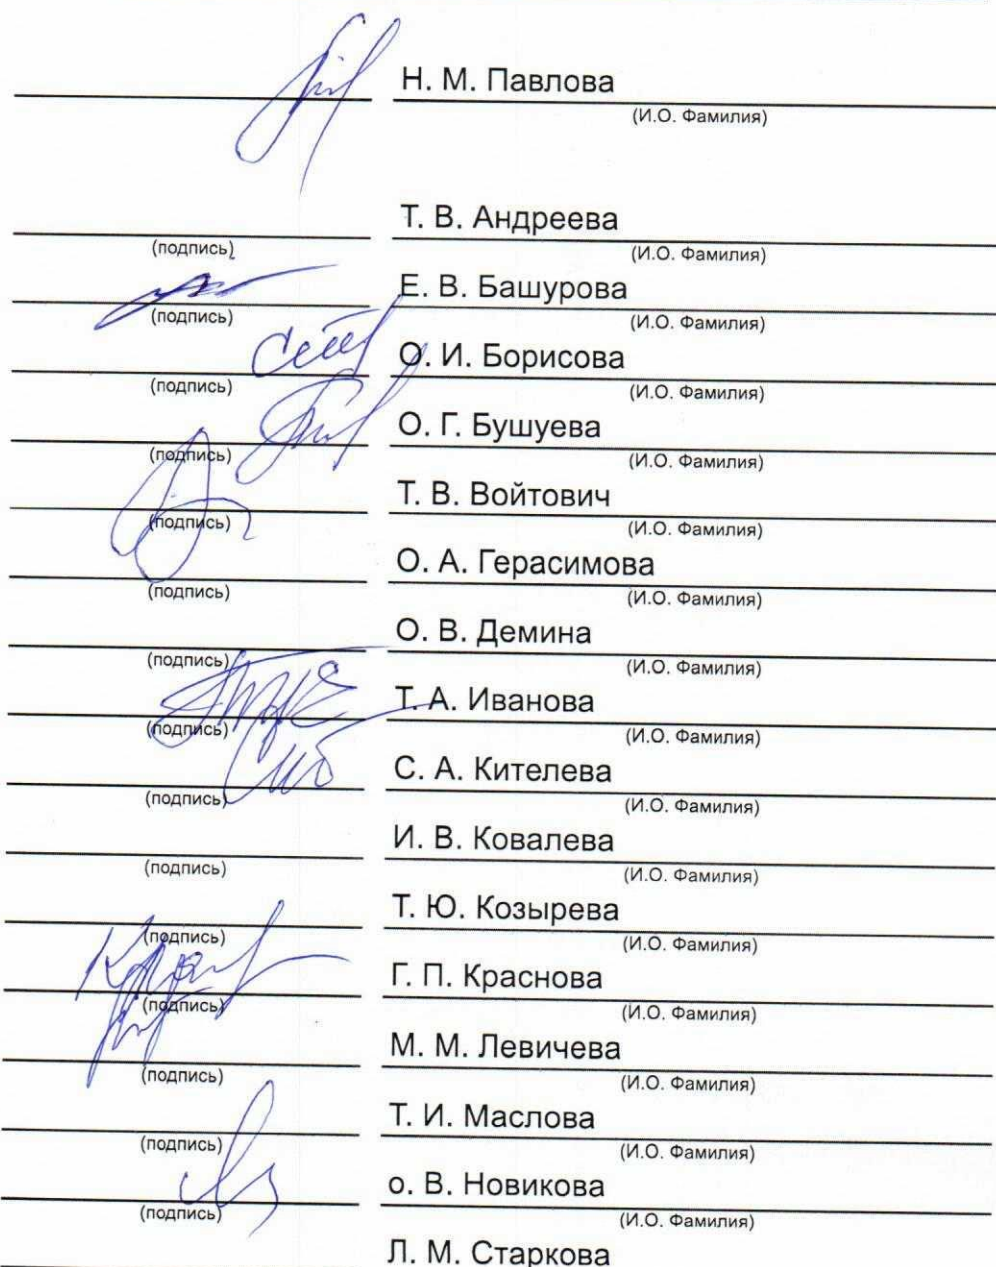 Н. М. Павлова
(И.О. Фамилия)
Т. В. Андреева
(подпись) (И.О. Фамилия)
Е. В. Башурова
(подпись) (И.О. Фамилия)
О. И. Борисова
(подпись) (И.О. Фамилия)
О. Г. Бушуева
(подпись) (И.О. Фамилия)
Т. В. Войтович
(подпись) (И.О. Фамилия)
О. А. Герасимова
(подпись) (И.О. Фамилия)
О. В. Демина
(подпись) (И.О. Фамилия)
Т. А. Иванова
(подпись) (И.О. Фамилия)
С. А. Кителева
(подпись) (И.О. Фамилия)
И. В. Ковалева
(подпись) (И.О. Фамилия)
Т. Ю. Козырева
(подпись) (И.О. Фамилия)
Г. П. Краснова
(подпись) (И.О. Фамилия)
М. М. Левичева
(подпись) (И.О. Фамилия)
Т. И. Маслова
(подпись) (И.О. Фамилия)
о. В. Новикова
(подпись) (И.О. Фамилия)
Л. М. Старкова